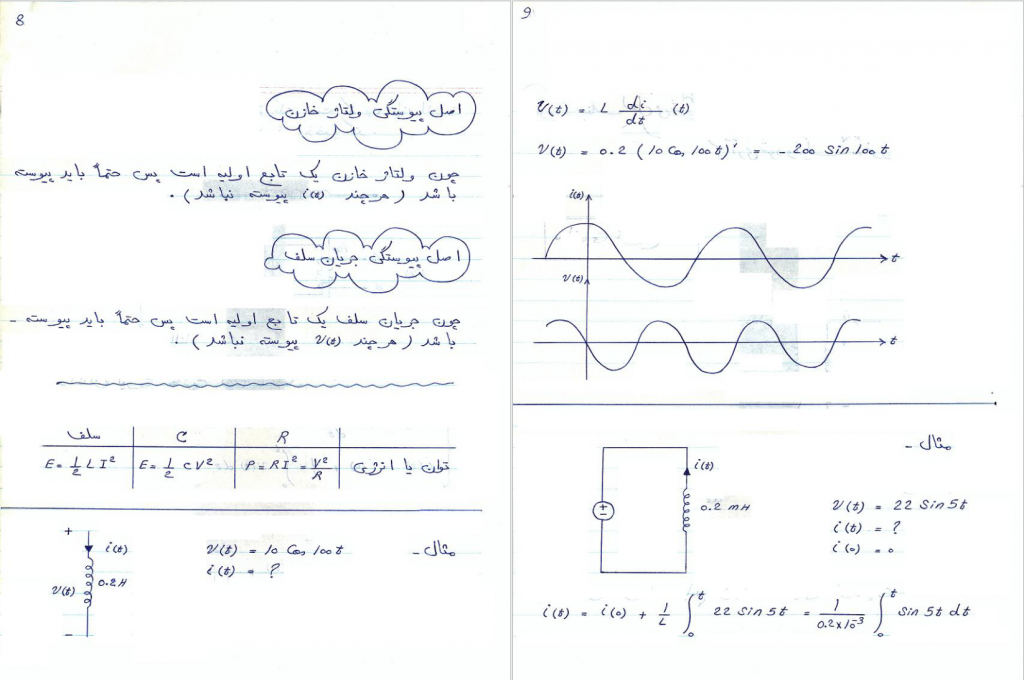 8
اصل پیوستگی ولتاژ خازن
چون ولتاژ خازن یک تابع اولیه است پس حتماً باید پیوسته
باشد (هر چند i(t) پیوسته نباشد).
اصل پیوستگی جریان سلف
چون جریان سلف یک تابع اولیه است پس حتماً باید پیوسته -
باشد (هر چند V(t) پیوسته نباشد).
سلف C R
توان یا انرژی P = RI² = V²/R E = 1/2 CV² E = 1/2 LI²
مثال -
V(t) = 10 Cos 100t
i(t) = ?
+
i(t)
V(t)
0.2H
-
9
V(t) = L di/dt (t)
V(t) = 0.2 (10 Cos 100t)' = -200 Sin 100t
i(t)
t
V(t)
t
مثال -
i(t)
+
-
0.2 mH
V(t) = 22 Sin 5t
i(t) = ?
i(0) = 0
i(t) = i(0) + 1/L ∫₀ᵗ 22 Sin 5t = 1/0.2×10⁻³ ∫₀ᵗ Sin 5t dt